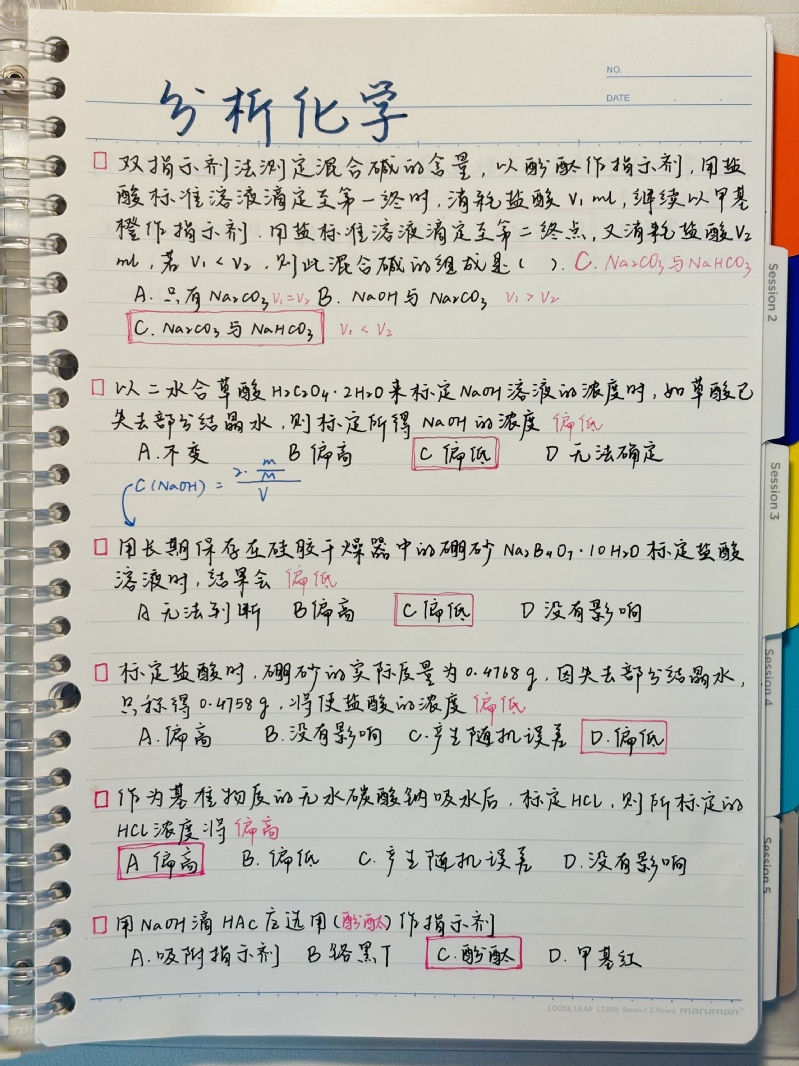 NO.
DATE
分析化学
双指示剂法测定混合碱的含量，以酚酞作指示剂，用盐
酸标准溶液滴定至第一终时，消耗盐酸V₁ml，继续以甲基
橙作指示剂．用盐标准溶液滴定至第二终点，又消耗盐酸V₂
ml，若V₁<V₂，则此混合碱的组成是( ). C. Na₂CO₃与NaHCO₃
A. 只有Na₂CO₃ V₁=V₂ B. NaOH与Na₂CO₃ V₁>V₂
C. Na₂CO₃与NaHCO₃ V₁<V₂
以二水合草酸H₂C₂O₄·2H₂O来标定NaOH溶液的浓度时，如草酸已
失去部分结晶水，则标定所得NaOH的浓度 偏低
A.不变 B 偏高 C 偏低 D 无法确定
C(NaOH) = 2·m/M / V
用长期保存在硅胶干燥器中的硼砂Na₂B₄O₇·10H₂O标定盐酸
溶液时，结果会 偏低
A 无法判断 B偏高 C偏低 D没有影响
标定盐酸时，硼砂的实际质量为0.4768g，因失去部分结晶水，
只称得0.4758g，将使盐酸的浓度 偏低
A.偏高 B.没有影响 C.产生随机误差 D.偏低
作为基准物质的无水碳酸钠吸水后，标定HCl，则所标定的
HCl浓度将 偏高
A 偏高 B. 偏低 C. 产生随机误差 D.没有影响
用NaOH滴HAc应选用(酚酞)作指示剂
A.吸附指示剂 B 铬黑T C.酚酞 D. 甲基红
LOOSE LEAF L1205 8mm×236mm maruman
Session 2
Session 3
Session 4
Session 5